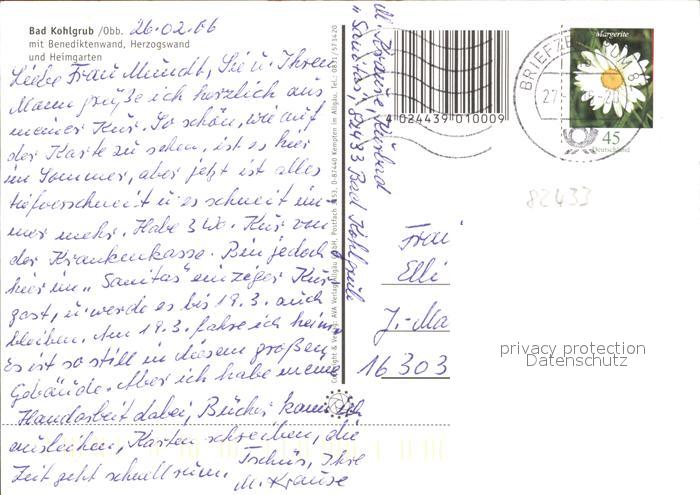 Bad Kohlgrub /Obb. 26.02.06
mit Benediktenwand, Herzogswand
und Heimgarten
Liebe Frau Mundt, Sie u. Ihren
Mann grüße ich herzlich aus
meiner Kur. So schön, wie auf
der Karte zu sehen, ist es hier
im Sommer, aber jetzt ist alles
tiefverschneit u. es schneit im-
mer mehr. Habe 3 Wo. Kur von
der Krankenkasse. Bin jedoch
hier im „Sanitas" einziger Kur
gast, u. werde es bis 19.3. auch
bleiben. Am 19.3. fahre ich heim.
Es ist so still in diesem großen
Gebäude. Aber ich habe meine
Handarbeit dabei, Bücher kann ich
ausleihen, Karten schreiben, die
Zeit geht schnell rum. Tschüs, Ihre
M. Krause
Copyright & Verlag: AVA Verlag Allgäu GmbH, Postfach 3153, D-87440 Kempten im Allgäu, Tel. 0831/573420
M. Krause, Kurbad
„Sanitas", 82433 Bad Kohlgrub
4 024439 010009
BRIEFZE
27
Margerite
45
Deutschland
82433
Frau
Elli
J.-Ma
16303
privacy protection
Datenschutz